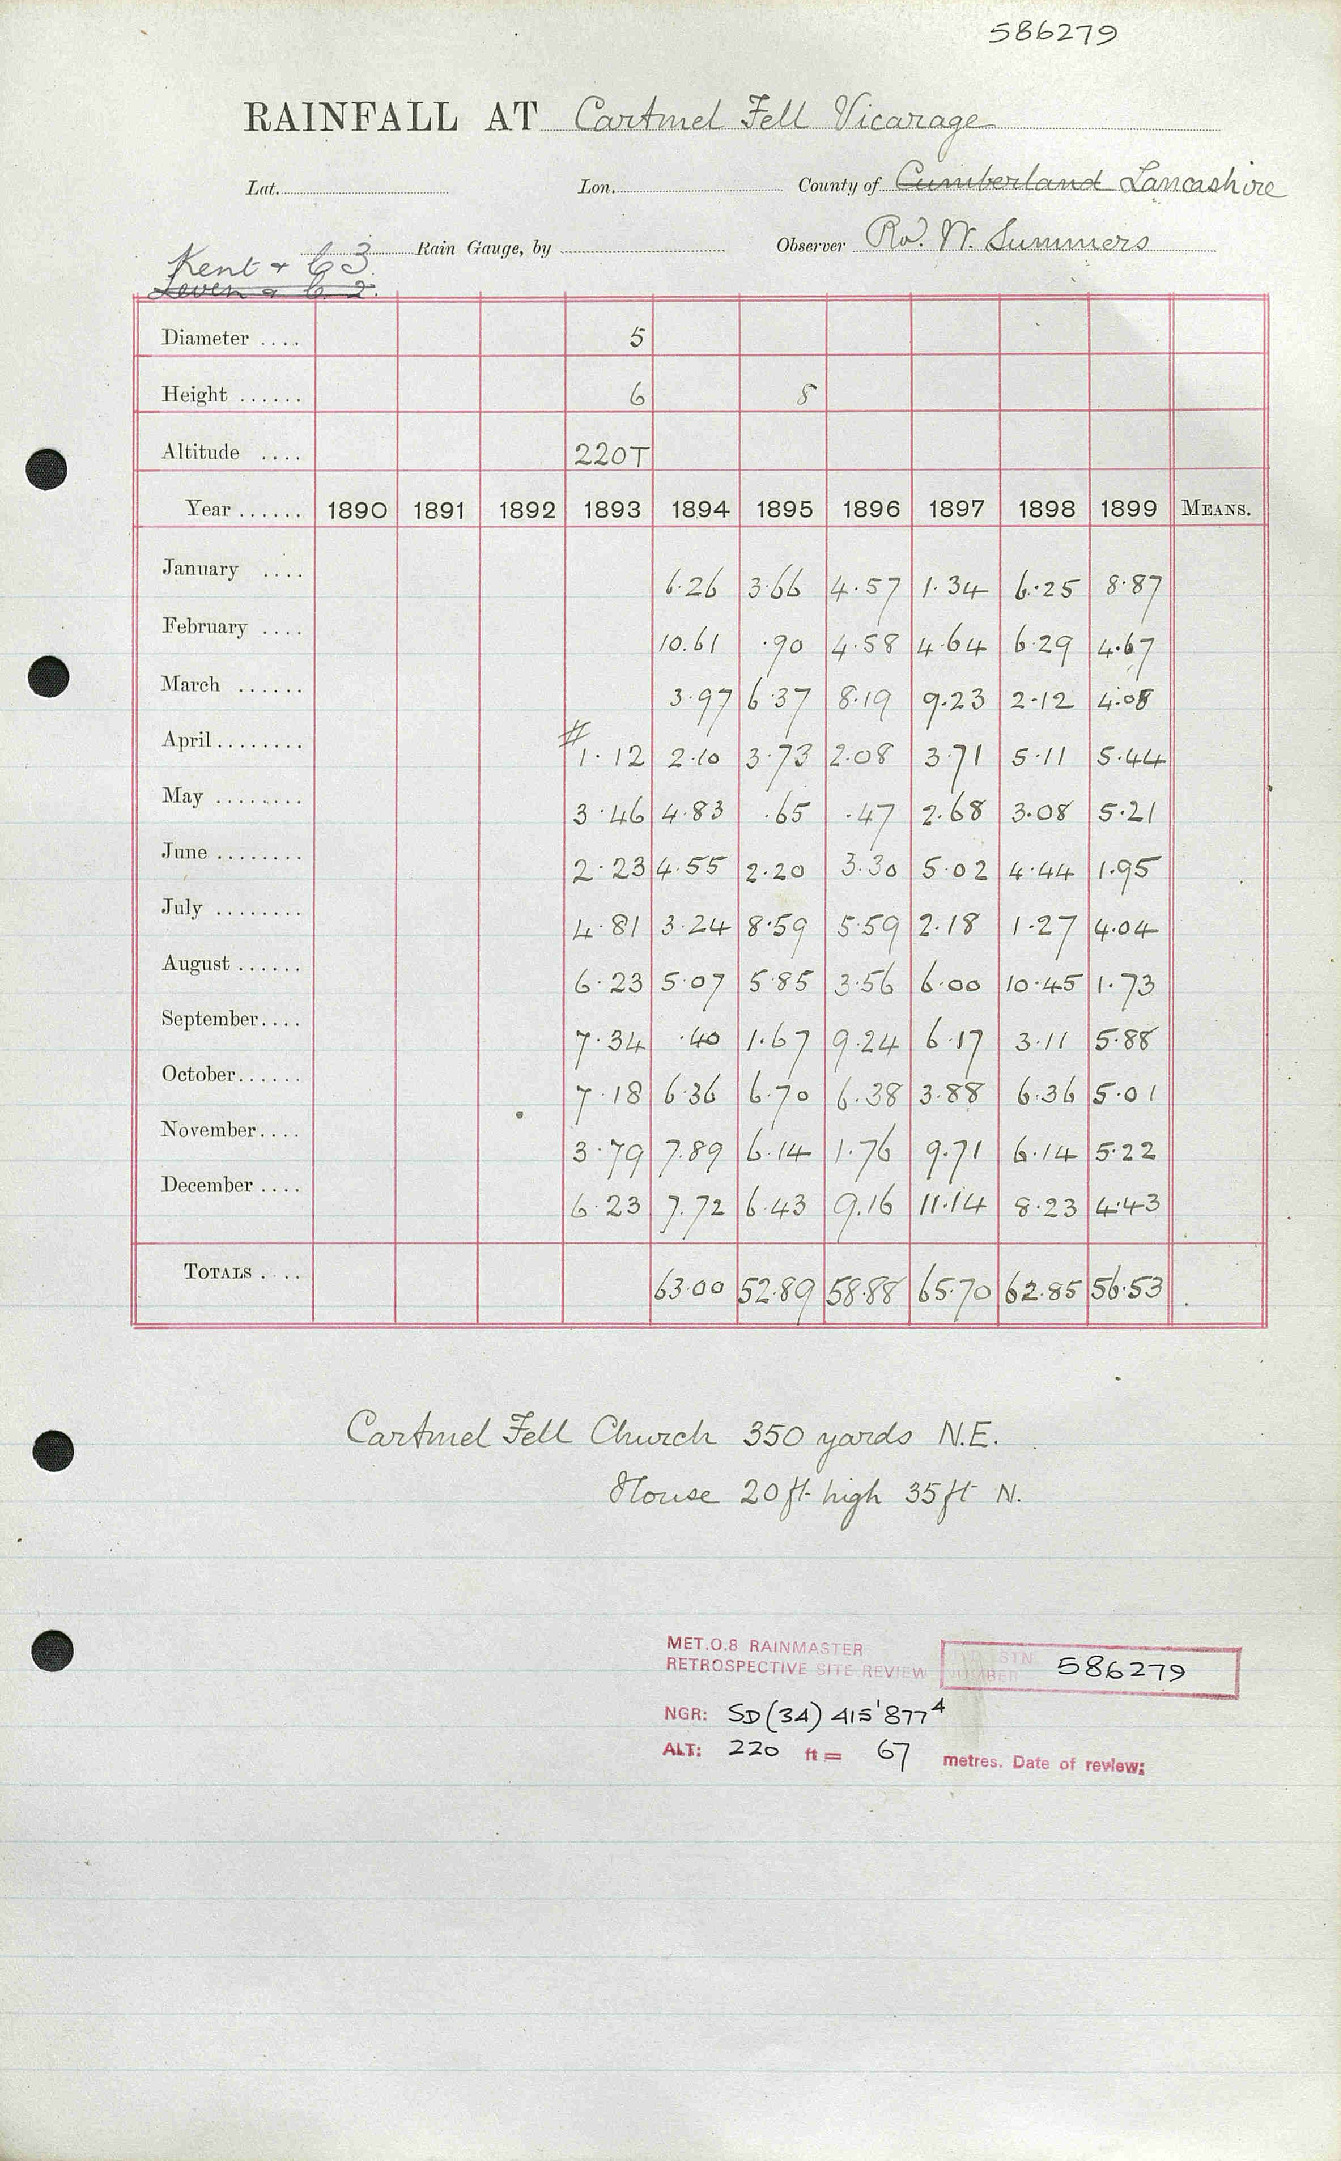 586279
RAINFALL AT Cartmel Fell Vicarage
Lat. Lon. County of Cumberland Lancashire
Kent & C 3. Rain Gauge, by Observer Rev. W. Summers
Leven & C 2.
Diameter .... 5
Height ...... 6 8
Altitude .... 220T
Year ...... 1890 1891 1892 1893 1894 1895 1896 1897 1898 1899 MEANS.
January .... 6.26 3.66 4.57 1.34 6.25 8.87
February .... 10.61 .90 4.58 4.64 6.29 4.67
March ...... 3.97 6.37 8.19 9.23 2.12 4.08
April ........ # 1.12 2.10 3.73 2.08 3.71 5.11 5.44
May ........ 3.46 4.83 .65 .47 2.68 3.08 5.21
June ........ 2.23 4.55 2.20 3.30 5.02 4.44 1.95
July ........ 4.81 3.24 8.59 5.59 2.18 1.27 4.04
August ...... 6.23 5.07 5.85 3.56 6.00 10.45 1.73
September.... 7.34 .40 1.67 9.24 6.17 3.11 5.88
October...... 7.18 6.36 6.70 6.38 3.88 6.36 5.01
November.... 3.79 7.89 6.14 1.76 9.71 6.14 5.22
December .... 6.23 7.72 6.43 9.16 11.14 8.23 4.43
TOTALS .... 63.00 52.89 58.88 65.70 62.85 56.53
Cartmel Fell Church 350 yards N.E.
House 20 ft. high 35 ft N.
MET.O.8 RAINMASTER
RETROSPECTIVE SITE REVIEW STN. NUMBER 586279
NGR: SD (34) 415'877⁴
ALT: 220 ft = 67 metres. Date of review: